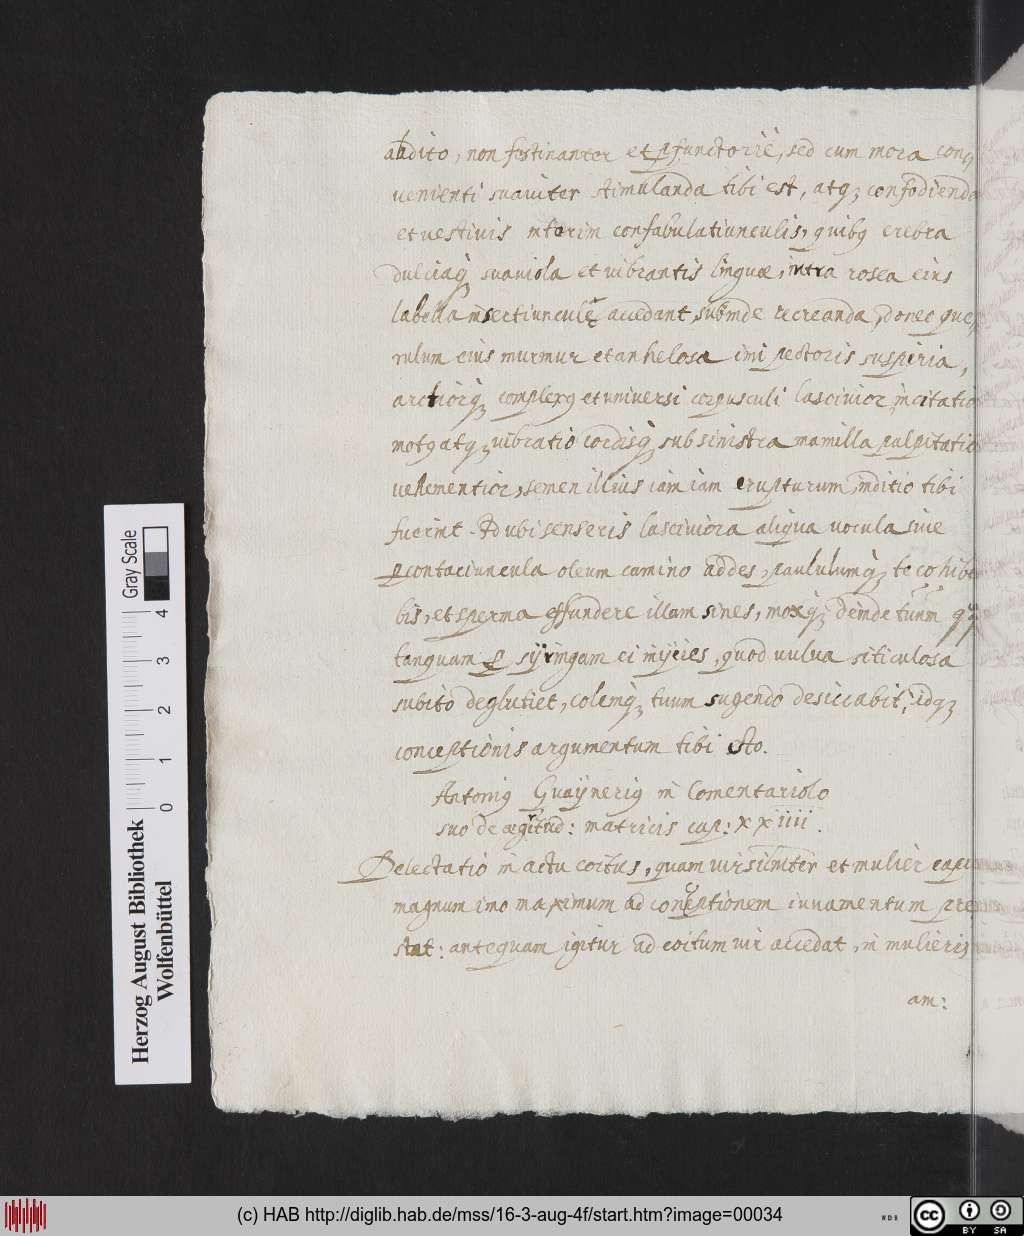 abdito, non festinanter et pfunctorie, sed cum mora con-
uenienti suauiter stimulanda tibi est, atq; confodienda
et uestiuis interim confabulatiunculis, quibꝰ crebra
dulciaq; suauiola et uibrantis linguæ, intra rosea eius
labella insertiunculę accedant, subinde recreanda, donec que-
rulum eius murmur et anhelosa imi pectoris suspiria,
arctiorq; complexꝰ et uniuersi corpusculi lasciuior incitatio
motꝰ atq; uibratio cordisq; sub sinistra mamilla palpitatio
uehementior, semen illius iam iam erupturum, inditio tibi
fuerint. Et ubi senseris lasciuiora aliqua uocula siue
pcontaciuncula oleum camino addes, paululumq; te cohibe-
bis, et sperma effundere illam sines, moxq; deinde tuum
tanquam p sÿringam ei inÿcies, quod uulua siticulosa
subito deglutiet, colemq; tuum sugendo desiccabit, idq;
conceptionis argumentum tibi esto.
Antoniꝰ Guaÿneriꝰ in Comentariolo
suo de ægritud: matricis cap: xxiiii.
Delectatio in actu coitus, quam uir similiter et mulier capiu
magnum imo maximum ad conceptionem iuuamentum pre-
stat: antequam igitur ad coitum uir accedat, in mulieris
am:
Gray Scale
0 1 2 3 4
Herzog August Bibliothek
Wolfenbüttel
(c) HAB http://diglib.hab.de/mss/16-3-aug-4f/start.htm?image=00034
WDB
cc
BY SA